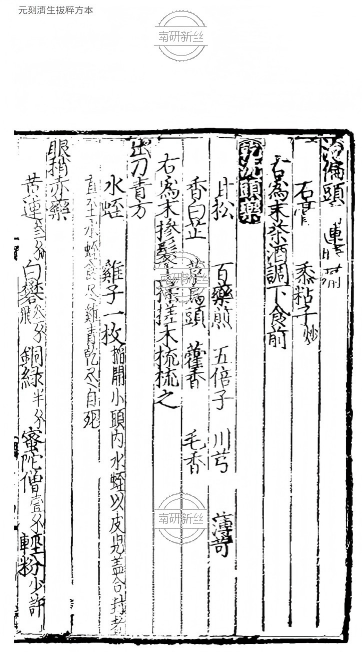 元刻濟生拔粹方本
南研新丝
治偏頭 連
石膏 黍粘子炒
右為末柒酒調下食前
乾洗頭藥
甘松 百藥煎 五倍子 川芎 薄苛
香白芷 草烏頭 藿香 毛香
右為末摻髮上揉搓木梳梳之
出刀青方
水蛭 雞子一枚 開小頭內水蛭以皮児盖合封
水蛭食尽雞青乾尽自死
眼稍赤藥
黄連 白礬 銅緑半分 蜜陀僧壹分 輕粉少許
南研新丝
南研新丝